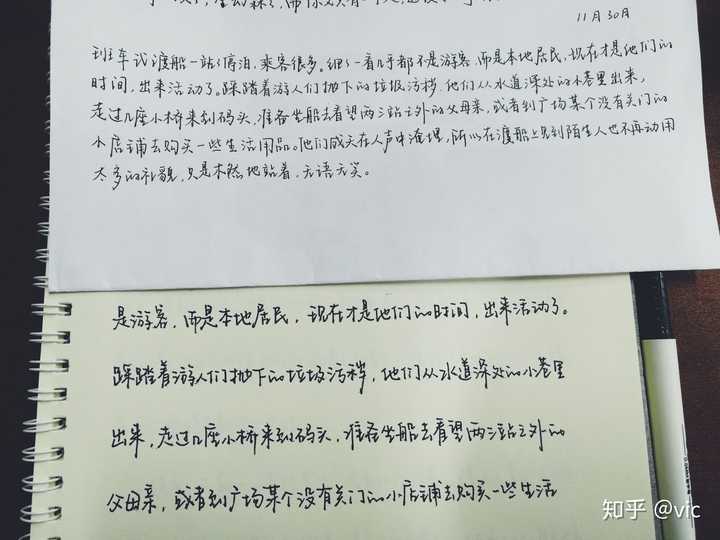 11月30日
班车式渡船一站一站停泊,乘客很多。细细一看几乎都不是游客,而是本地居民,现在才是他们的
时间,出来活动了。踩踏着游人们抛下的垃圾污秽,他们从水道深处的小巷里出来,
走过几座小桥来到码头,准备坐船去看望两三站之外的父母亲,或者到广场某个没有关门的
小店铺去购买一些生活用品。他们成天在人声中淹埋,所以在渡船上见到陌生人也不再动用
太多的礼貌,只是木然地站着,无语无笑。
是游客,而是本地居民,现在才是他们的时间,出来活动了。
踩踏着游人们抛下的垃圾污秽,他们从水道深处的小巷里
出来,走过几座小桥来到码头,准备坐船去看望两三站之外的
父母亲,或者到广场某个没有关门的小店铺去购买一些生活
知乎 @vic